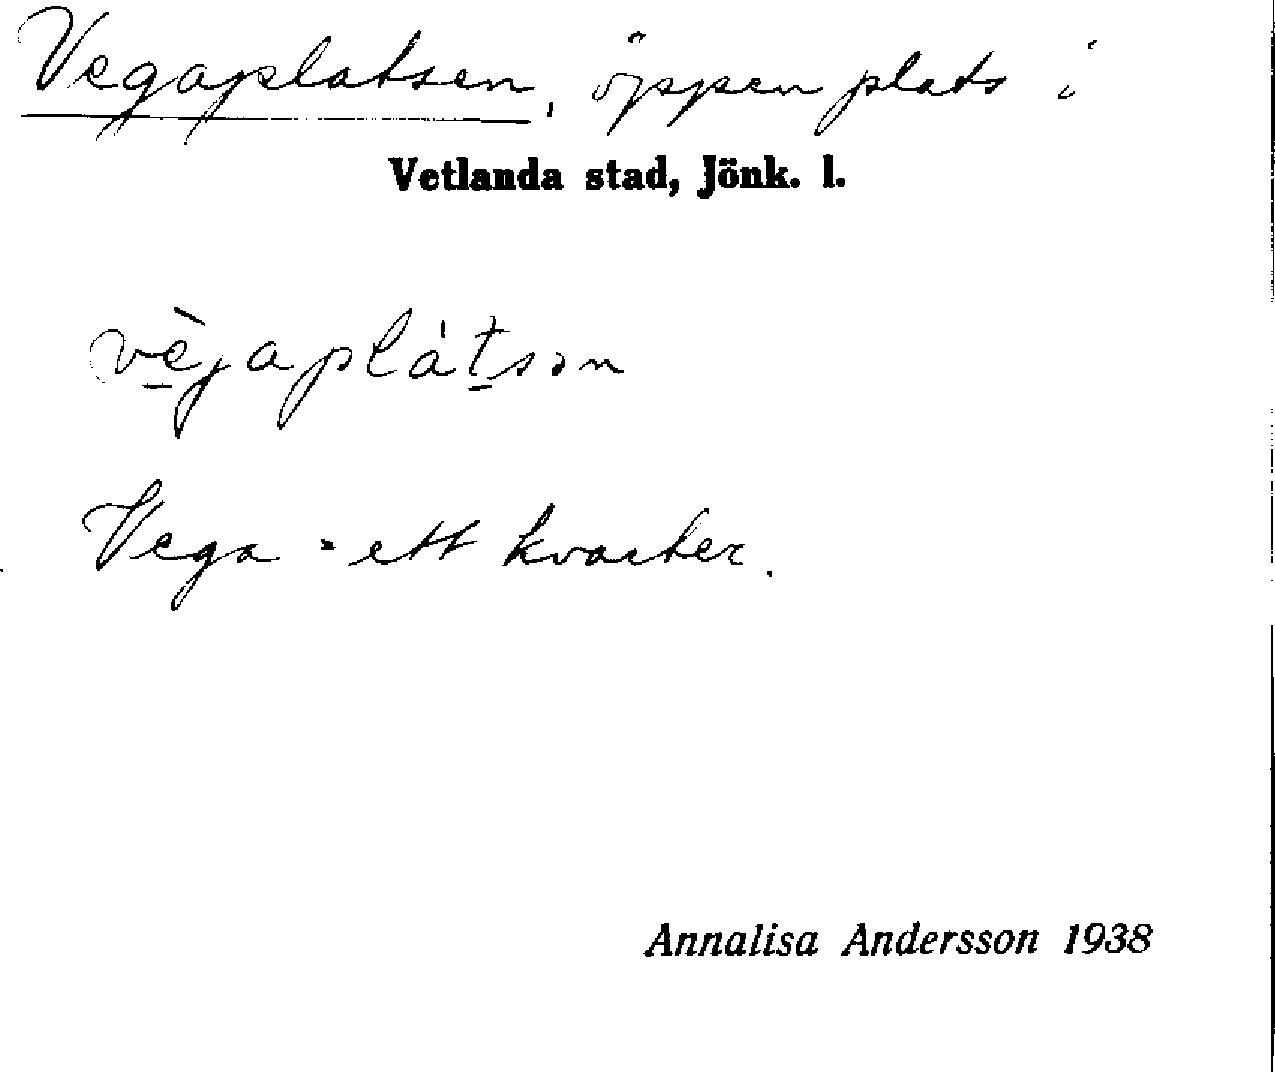 Vegaplatsen, öppen plats i
Vetlanda stad, Jönk. l.
vè̱japláṯsən
Vega = ett kvarter.
Annalisa Andersson 1938